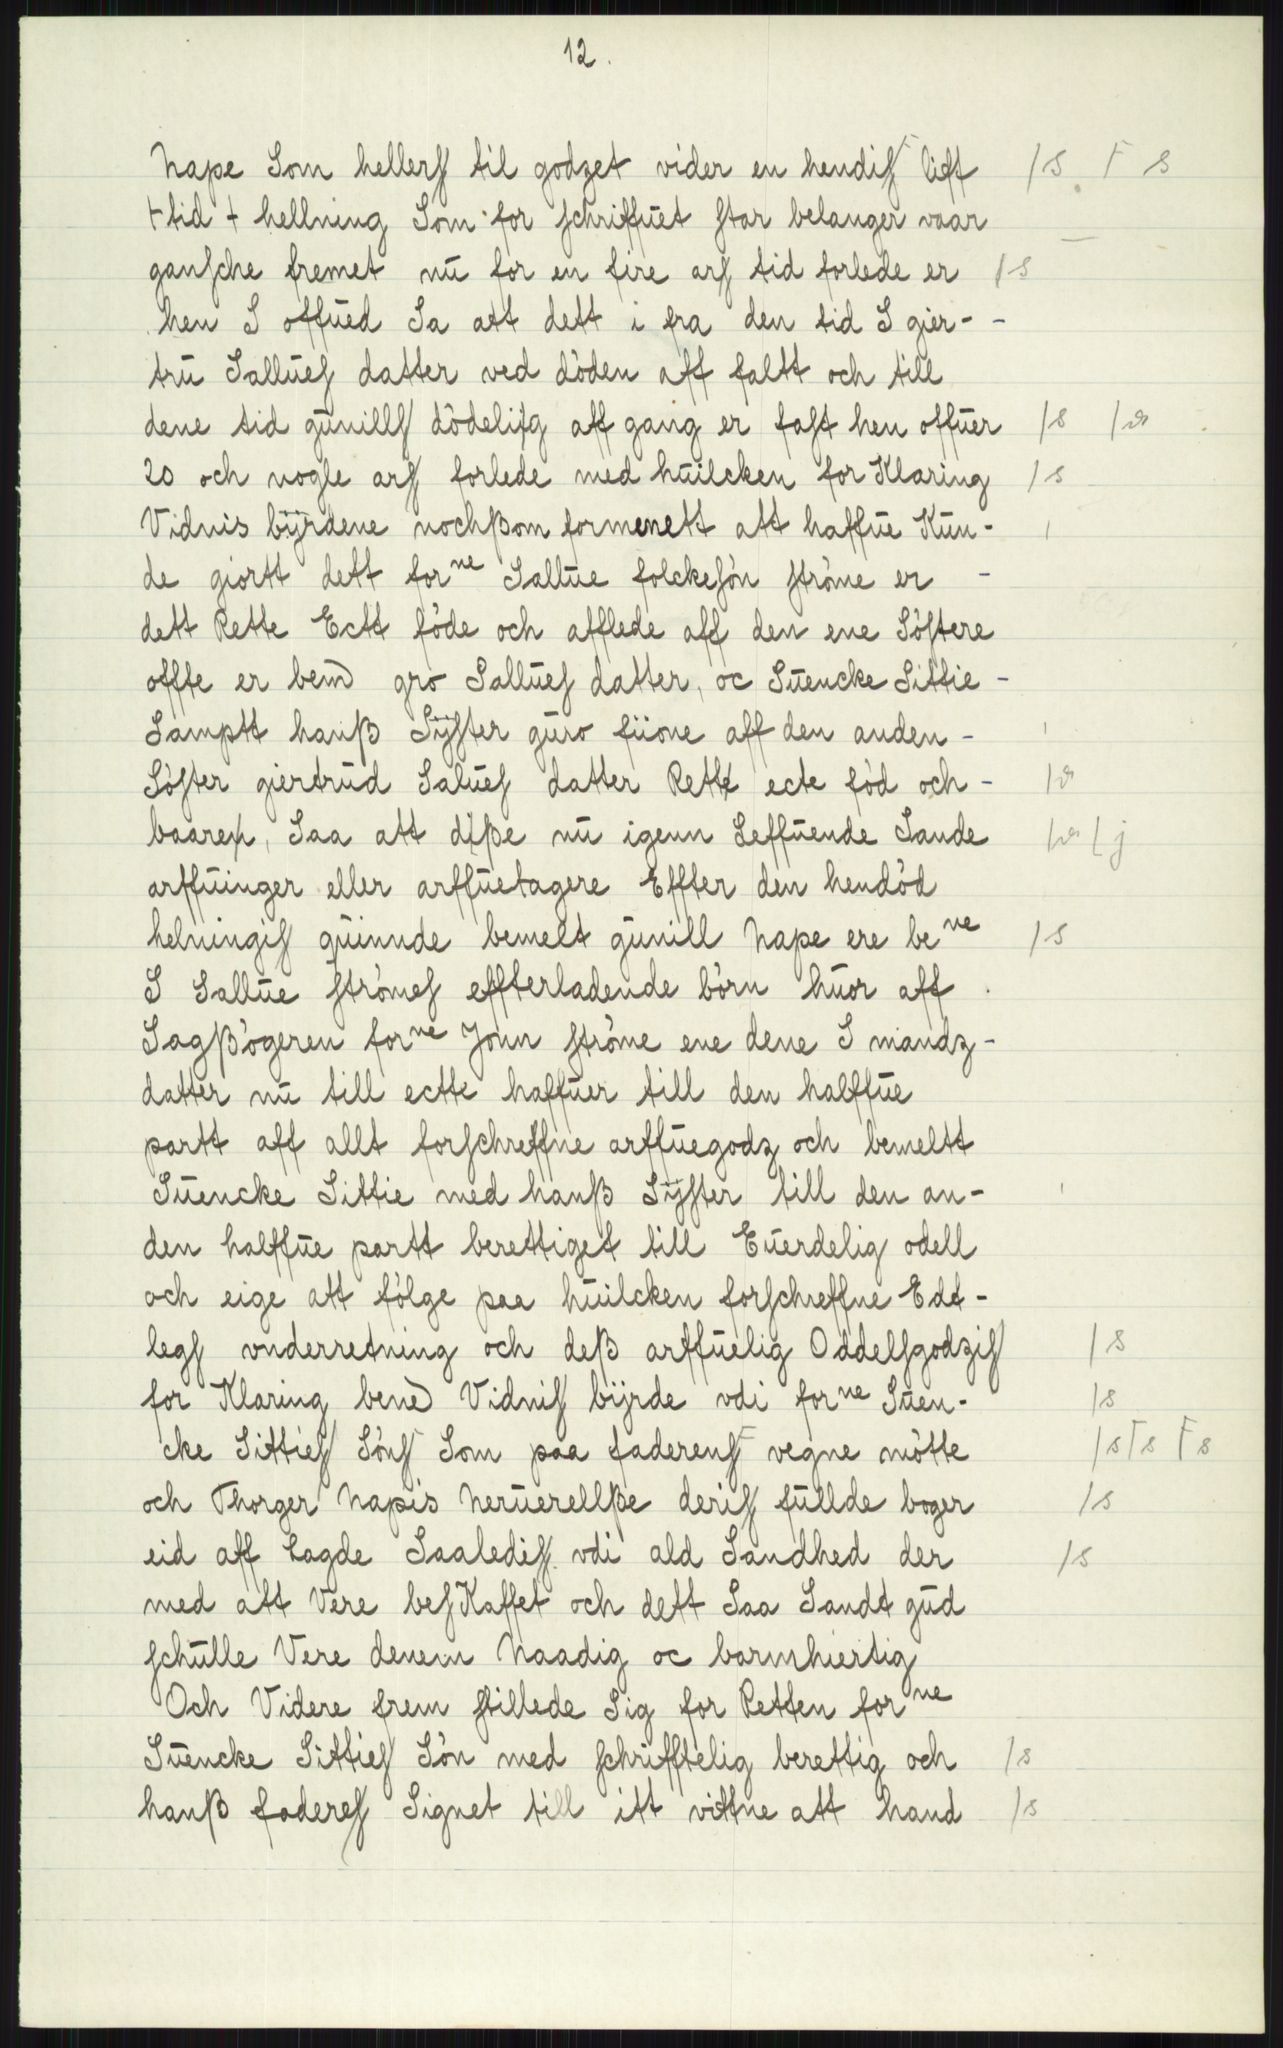 12.
Nape Som hellerſ til godzet vider en hendiſ lift /s Γ s
+ tid + hellning Som for ſchriffuet ſtar belanger vaar
ganſche fremet nu for en fire arſ tid forlede er /s
hen S offued Sa att dett i fra den tid S gier-
tru Sallueſ datter ved döden aff faltt och till
dene tid gunillſ dödelig aff gang er faſt hen offuer /s
20 och nogle arſ forlede med huilcken for Klaring /s
Vidnis byrdene nochßom formenett att haffue Kun-
de giortt dett forne Sallue folckeſön ſtröme er -
dett Rette Ectt föde och afflede aff den ene Söſtere
offte er bem gro Sallueſ datter, oc Suencke Sittie -
Samptt hanß Syſter guro fiione aff den anden -
Söſter giertrud Salueſ datter Rette ecte föd och -
baaren, Saa att diße nu igenn Leffuende Sande
arffuinger eller arffuetagere Effter den hendöd
helningiſ quinnde bemelt gunill Nape ere bene /s
S Sallue ſtrömeſ effterladende börn huor aff
Sagßögeren forne Jonn ſtröme ene dene S mandz-
datter nu till ectte haffuer till den halffue
partt aff allt forſchreffne arffuegodz och bemeltt
Suencke Sittie med hanß Syſter till den an-
den halffue partt berettiget till Euerdelig odell
och eige att fölge paa huilcken forſchreffne Edt-
legſ vnderretning och deß arffuelig Oddelſgodziſ /s
for Klaring bene Vidniſ byrde vdi forne Suen- /s
cke Sittieſ Sönſ Som paa faderenſ vegne mötte /s Γs Γs
och Thorger Napis Neruerellße deriſ fullde boger /s
eid aff Lagde Saalediſ vdi ald Sandhed der /s
med att Vere beſKaffet och dett Saa Sandt gud
ſchulle Vere denem Naadig oc barmhiertig
Och Videre frem ſtillede Sig for Retten forne
Suencke Sittieſ Sön med ſchrifftelig berettig och /s
hanß fadereſ Signet till itt vittne att hand /s